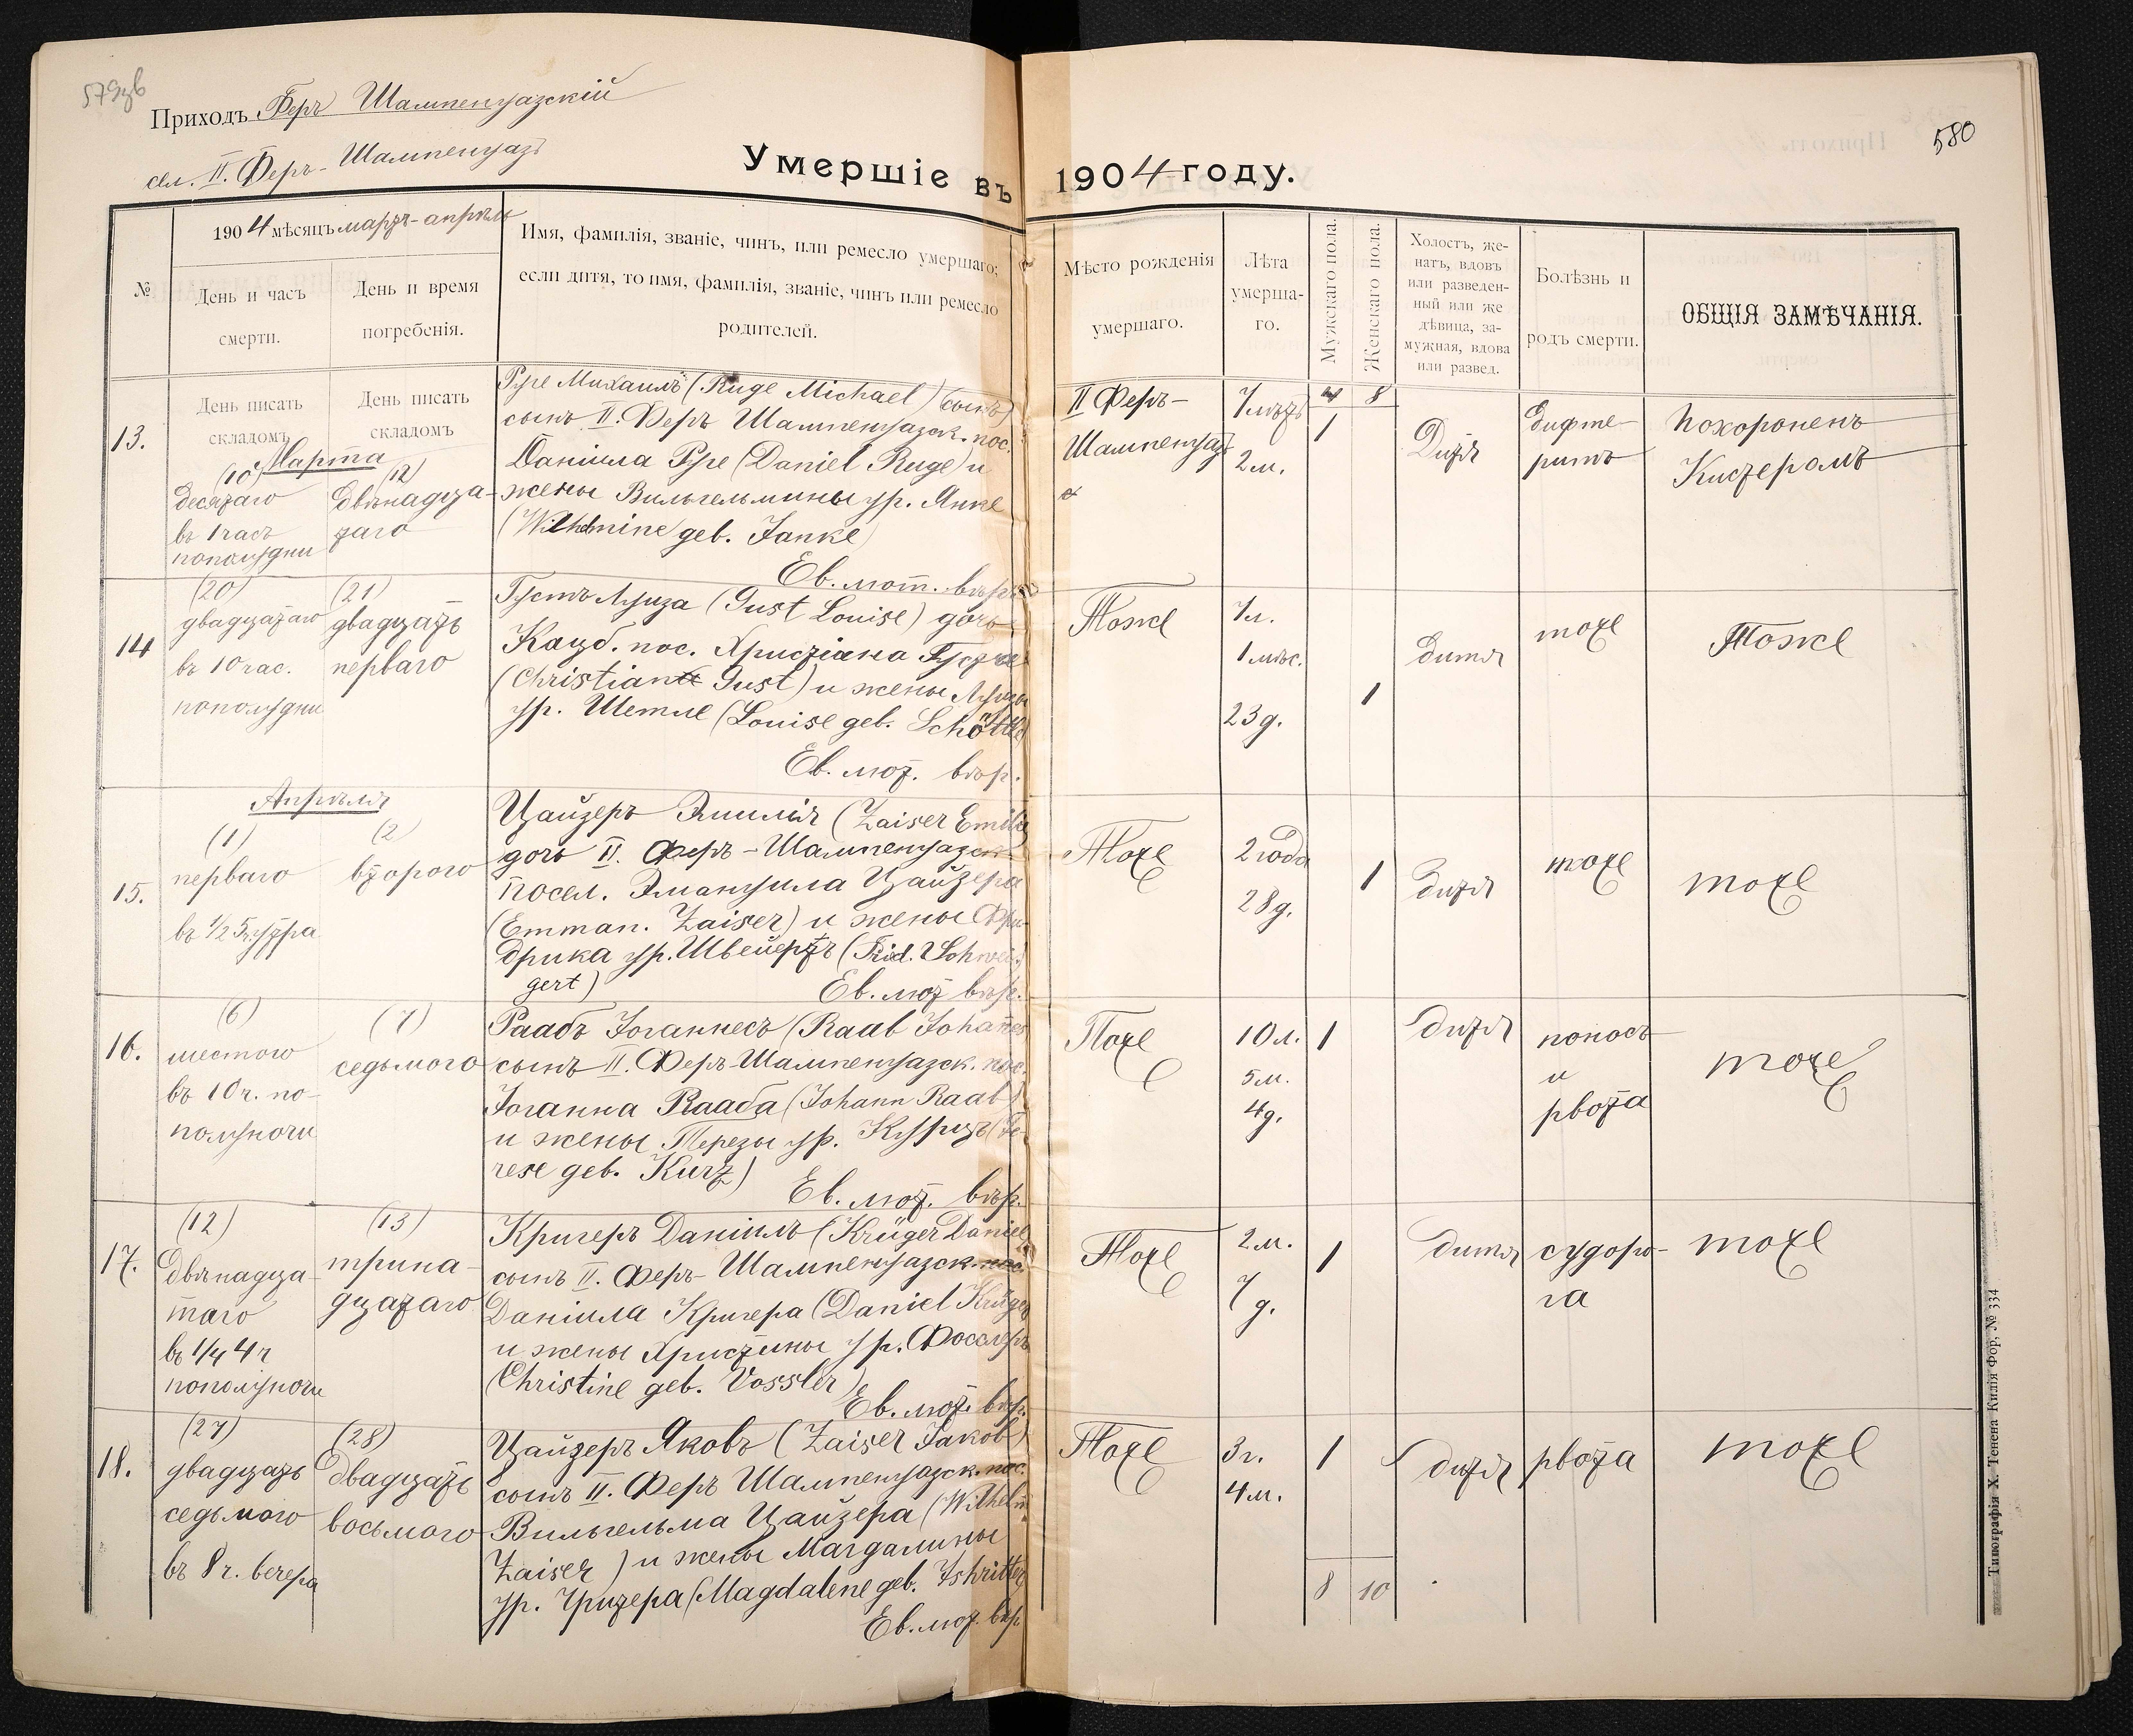 579зв
580
Приходъ Феръ Шампенуазскій
сел. II. Феръ-Шампенуазъ
Умершіе въ 1904 году.
№
1904 мѣсяцъ мартъ-апрѣль
День и часъ
смерти.
День и время
погребенія.
Имя, фамилія, званіе, чинъ, или ремесло умершаго;
если дитя, то имя, фамилія, званіе, чинъ или ремесло
родителей.
Мѣсто рожденія
умершаго.
Лѣта
умерша-
го.
Мужскаго пола.
Женскаго пола.
Холостъ, же-
натъ, вдовъ
или разведен-
ный или же
дѣвица, за-
мужная, вдова
или развед.
Болѣзнь и
родъ смерти.
ОБЩІЯ ЗАМѢЧАНІЯ.
День писать
складомъ
День писать
складомъ
13.
Марта
(10)
десятаго
въ 1 часъ
пополудни
(12)
двѣнадца-
таго
Руге Михаилъ (Ruge Michael) (сынъ)
сынъ II. Феръ Шампенуазск. пос.
Даніила Руге (Daniel Ruge) и
жены Вильгельмины ур. Янке
(Wilhelmine geb. Janke)
Ев. лют. вѣр.
II Феръ-
Шампенуазъ
7 лѣтъ
2 м.
4 8
1
Дитя
дифте-
ритъ
Похороненъ
Кистеромъ
14
(20)
двадцатаго
въ 10 час.
пополудни
(21)
двадцать
перваго
Густъ Луиза (Gust Louise) дочь
Кацб. пос. Христіана Густа
(Christian Gust) и жены Луизы
ур. Шетле (Louise geb. Schöttle)
Ев. лют. вѣр.
Тоже
7 л.
1 мѣс.
23 д.
1
дитя
тоже
Тоже
15.
Апрѣля
(1)
перваго
въ 1/2 5 ч. утра
(2)
второго
Цайзеръ Эмилія (Zaiser Emilie
дочь II. Феръ-Шампенуазск.
посел. Эмануила Цайзера
(Emman. Zaiser) и жены Фри-
дрика ур. Швейертъ (Frid. Schwei-
gert)
Ев. лют вѣр.
Тоже
2 года
28 д.
1
дитя
тоже
тоже
16.
(6)
шестого
въ 10 ч. по-
полуночи
(7)
седьмого
Раабъ Іоганнесъ (Raab Johannes
сынъ II. Феръ-Шампенуазск. пос.
Іоганна Рааба (Johann Raab)
и жены Терезы ур. Курцъ (Te-
rese geb. Kurz)
Ев. лют. вѣр.
Тоже
10 л.
5 м.
4 д.
1
дитя
поносъ
и
рвота
тоже
17.
(12)
двѣнадца-
таго
въ 1/4 4 ч
пополуночи
(13)
трина-
дцатаго
Кригеръ Даніилъ (Krüger Daniel
сынъ II. Феръ-Шампенуазск. пос.
Даніила Кригера (Daniel Krüger
и жены Христины ур. Фосслеръ
(Christine geb. Vossler)
Ев. лют. вѣр.
Тоже
2 м.
7
д.
1
дитя
судоро-
га
тоже
18.
(27)
двадцать
седьмого
въ 8 ч. вечера
(28)
двадцать
восьмого
Цайзеръ Яковъ (Zaiser Jakob)
сынъ II. Феръ Шампенуазск. пос.
Вильгельма Цайзера (Wilhelm
Zaiser) и жены Магдалины
ур. (Magdalene geb.
Ев. лют. вѣр.
Тоже
3 г.
4 м.
1
дитя
рвота
тоже
8 10
Типографія Х. Тенена Килія Фор. № 334